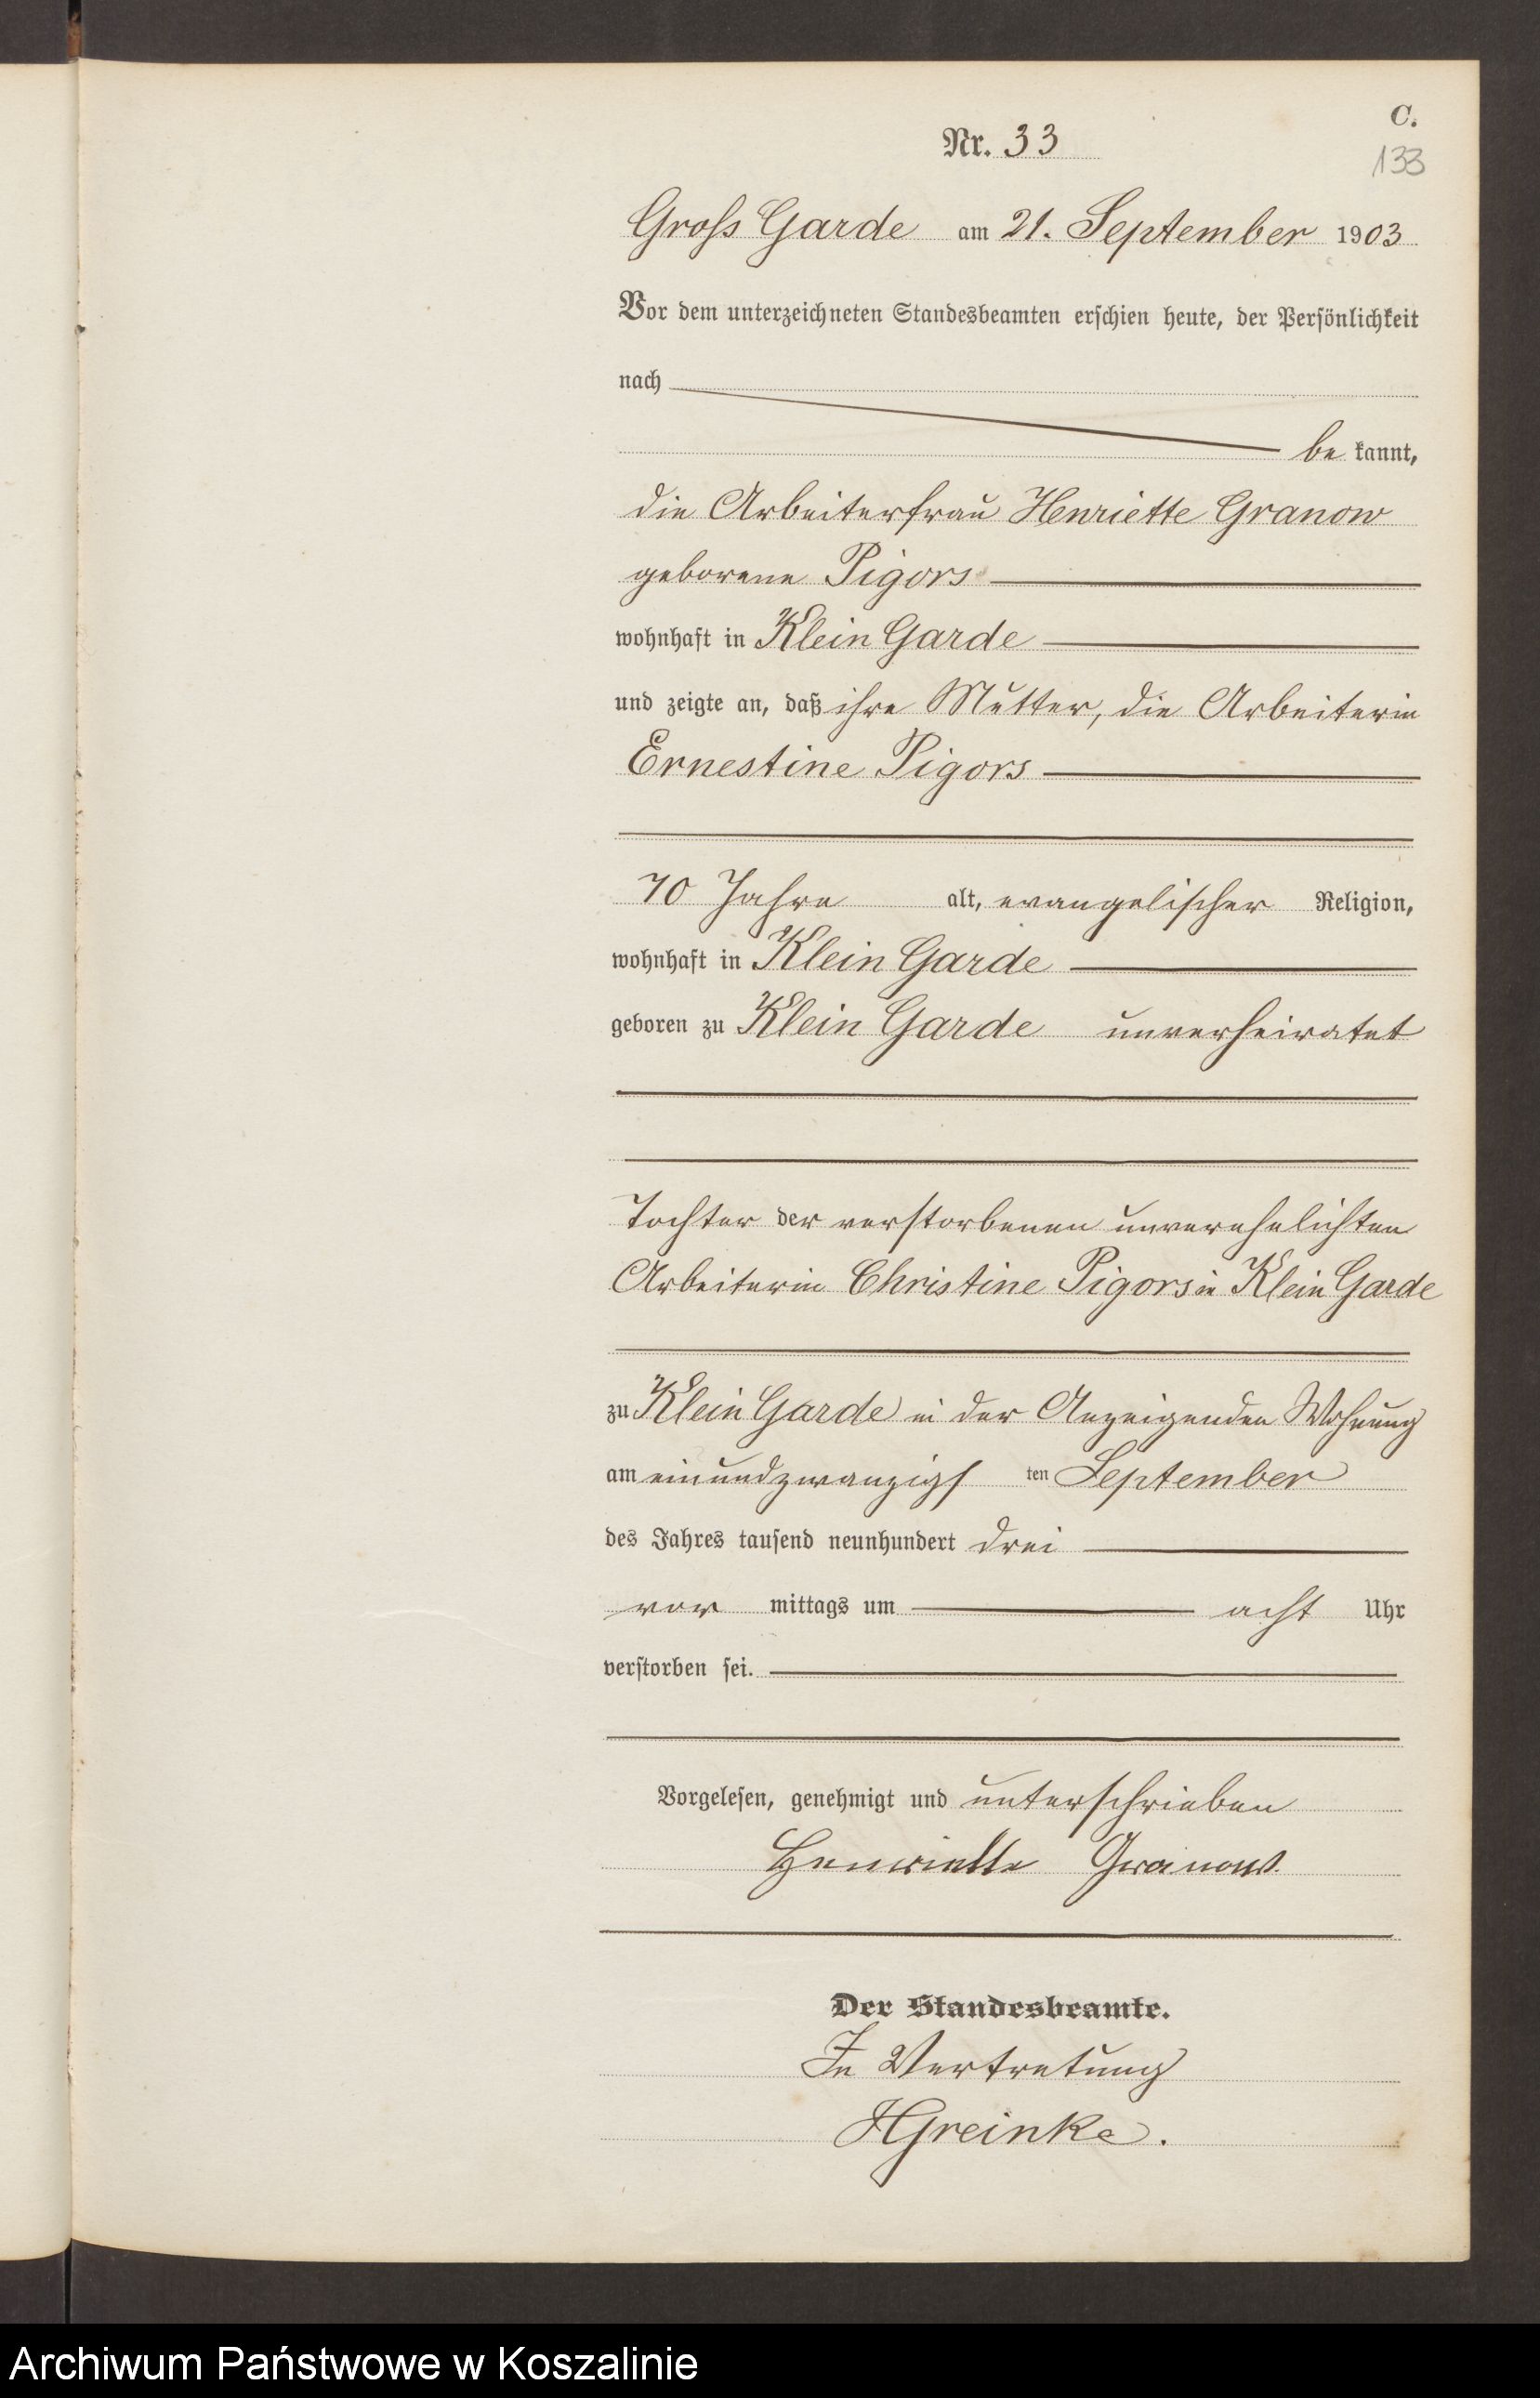 C.
Nr. 33
133
Gross Garde am 21. September 1903
Vor dem unterzeichneten Standesbeamten erschien heute, der Persönlichkeit
nach
be kannt,
die Arbeiterfrau Henriette Granow
geborene Pigors
wohnhaft in Klein Garde
und zeigte an, daß ihre Mutter, die Arbeiterin
Ernestine Pigors
70 Jahre alt, evangelischer Religion,
wohnhaft in Klein Garde
geboren zu Klein Garde unverheiratet
Tochter der verstorbenen unverehelichten
Arbeiterin Christine Pigors in Klein Garde
zu Klein Garde in der Anzeigenden Wohnung
am einundzwanzigs ten September
des Jahres tausend neunhundert drei
vor mittags um acht Uhr
verstorben sei.
Vorgelesen, genehmigt und unterschrieben
Henriette Granow.
Der Standesbeamte.
In Vertretung
HGreinke.
Archiwum Państwowe w Koszalinie